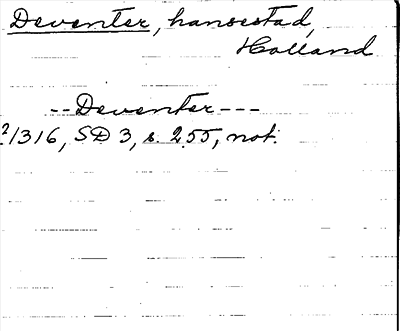 Deventer, hansestad,
Holland
--Deventer---
?1316, SD 3, s. 255, not.